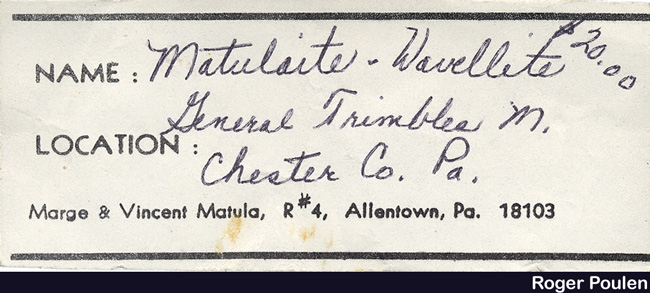 NAME: Matulaite - Wavellite $20.00
General Trimbles M.
LOCATION:
Chester Co. Pa.
Marge & Vincent Matula, R#4, Allentown, Pa. 18103
Roger Poulen